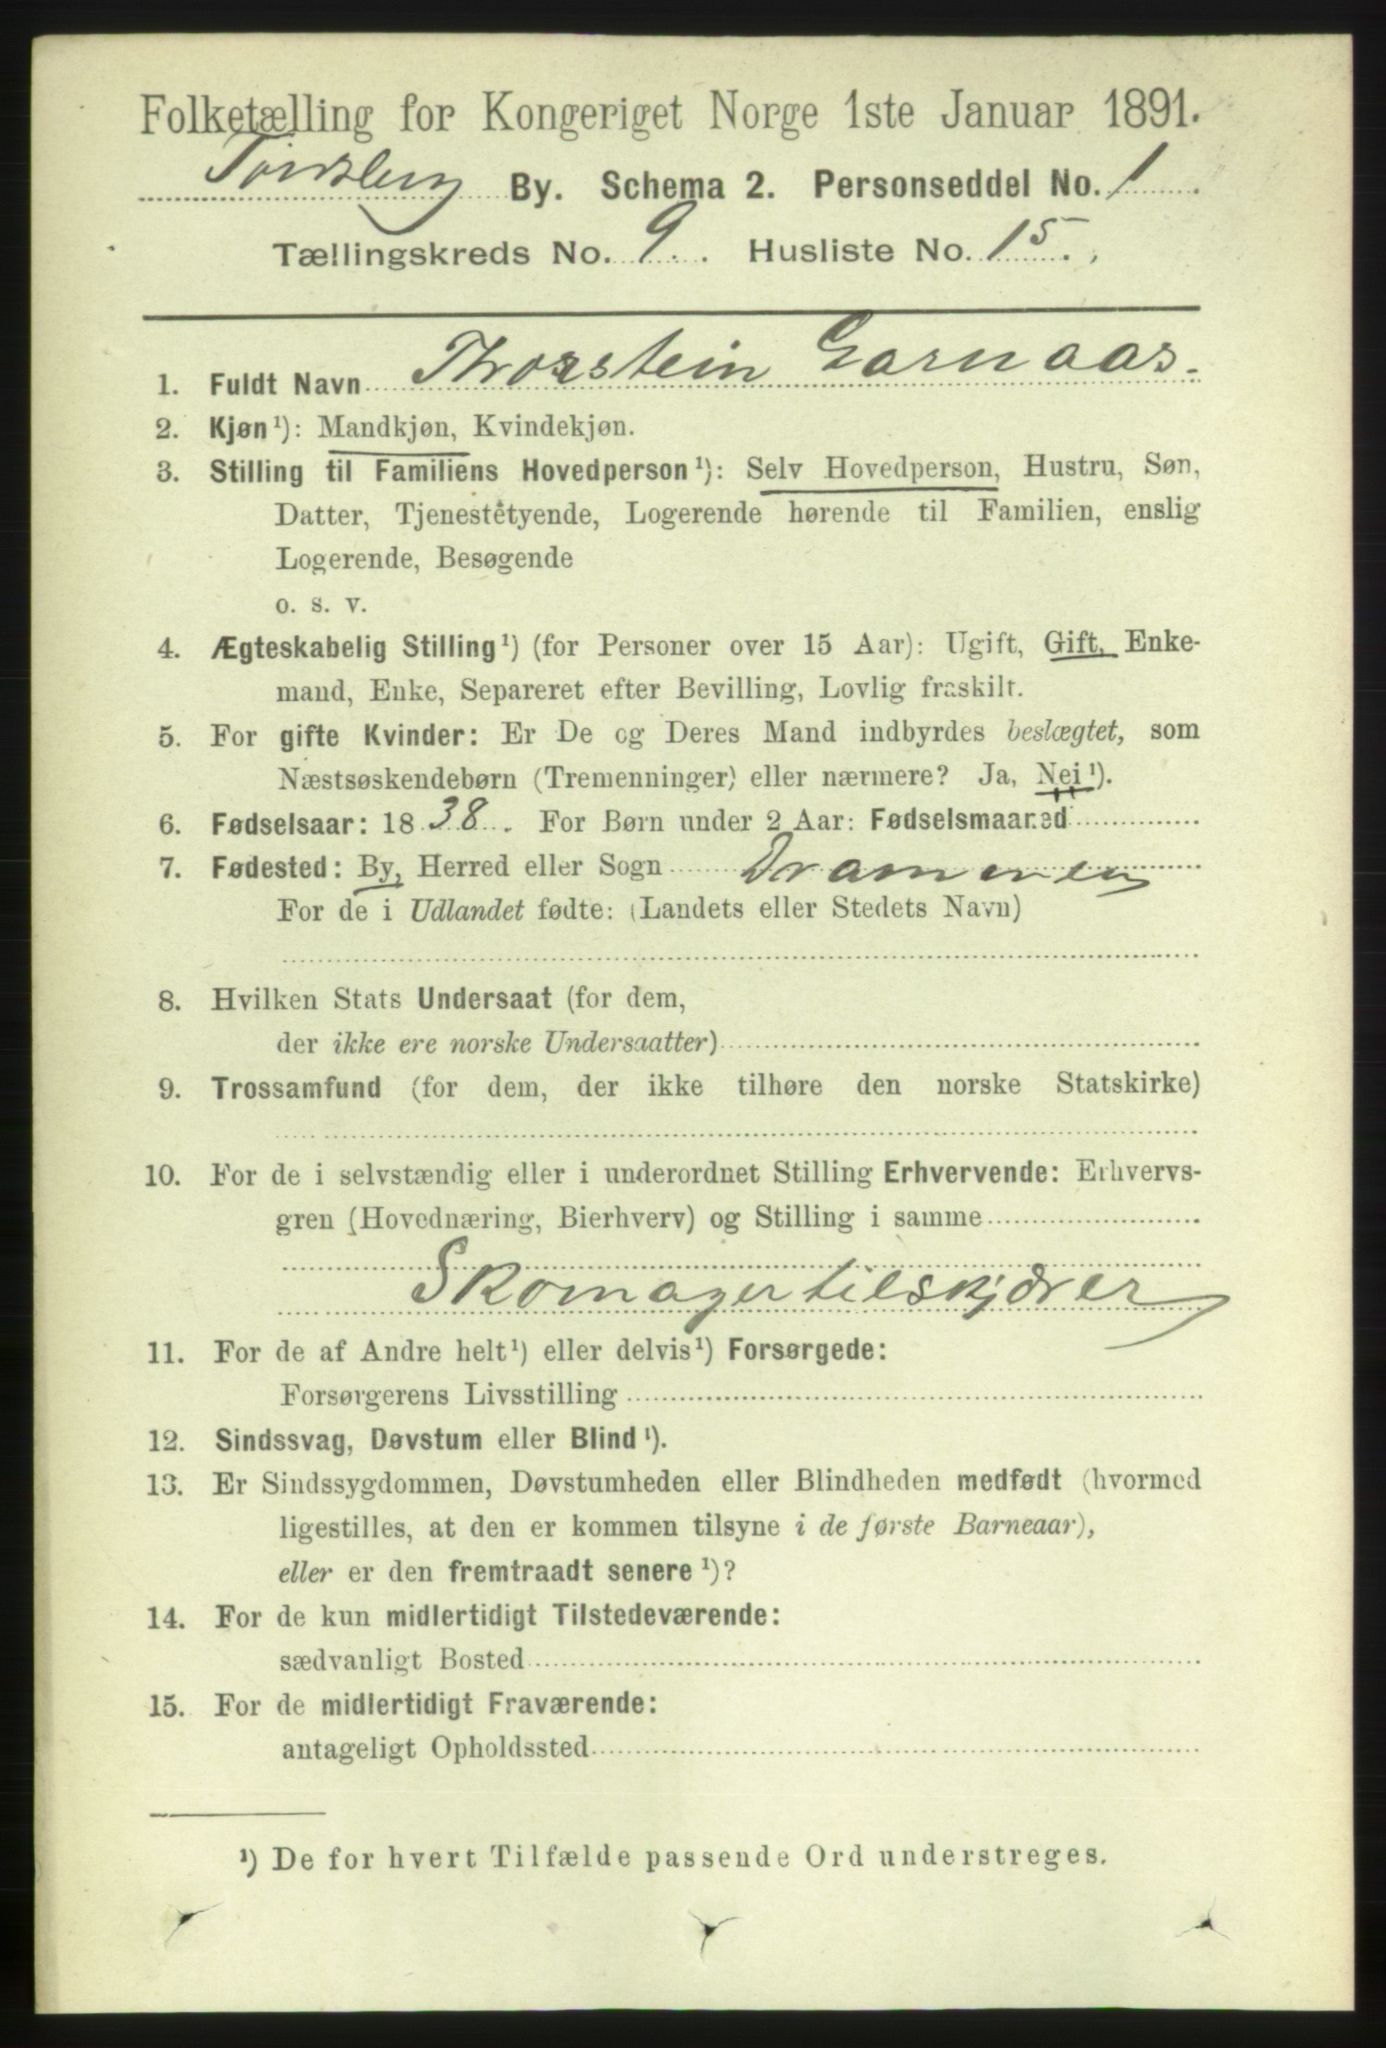 Folketælling for Kongeriget Norge 1ste Januar 1891.
Tønsberg By. Schema 2. Personseddel No. 1
Tællingskreds No. 9. Husliste No. 15.
1. Fuldt Navn Thorstein Garnaas.
2. Kjøn¹): Mandkjøn, Kvindekjøn.
3. Stilling til Familiens Hovedperson¹): Selv Hovedperson, Hustru, Søn,
Datter, Tjenestetyende, Logerende hørende til Familien, enslig
Logerende, Besøgende
o. s. v.
4. Ægteskabelig Stilling¹) (for Personer over 15 Aar): Ugift, Gift, Enke-
mand, Enke, Separeret efter Bevilling, Lovlig fraskilt.
5. For gifte Kvinder: Er De og Deres Mand indbyrdes beslægtet, som
Næstsøskendebørn (Tremenninger) eller nærmere? Ja, Nei¹).
6. Fødselsaar: 1838. For Børn under 2 Aar: Fødselsmaaned
7. Fødested: By, Herred eller Sogn Drammen
For de i Udlandet fødte: (Landets eller Stedets Navn)
8. Hvilken Stats Undersaat (for dem,
der ikke ere norske Undersaatter)
9. Trossamfund (for dem, der ikke tilhøre den norske Statskirke)
10. For de i selvstændig eller i underordnet Stilling Erhvervende: Erhvervs-
gren (Hovednæring, Bierhverv) og Stilling i samme
Skomagertilskjærer
11. For de af Andre helt¹) eller delvis¹) Forsørgede:
Forsørgerens Livsstilling
12. Sindssvag, Døvstum eller Blind¹).
13. Er Sindssygdommen, Døvstumheden eller Blindheden medfødt (hvormed
ligestilles, at den er kommen tilsyne i de første Barneaar),
eller er den fremtraadt senere¹)?
14. For de kun midlertidigt Tilstedeværende:
sædvanligt Bosted
15. For de midlertidigt Fraværende:
antageligt Opholdssted
¹) De for hvert Tilfælde passende Ord understreges.